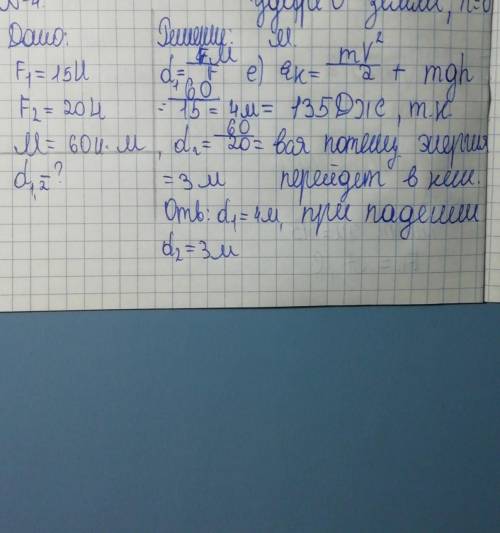 удара о земли, h=0
Дано:
F₁ = 15Н
F₂ = 20Н
М = 60Н·м
d₁,₂ = ?
Решение:
d₁ = М/F
= 60/15 = 4м
d₂ = 60/20 =
= 3 м
Отв: d₁ = 4м,
d₂ = 3м
е) Eк = mV²/2 + mgh
= 135Дж, т.к
вся потенц. энергия
перейдет в кин.
при падении